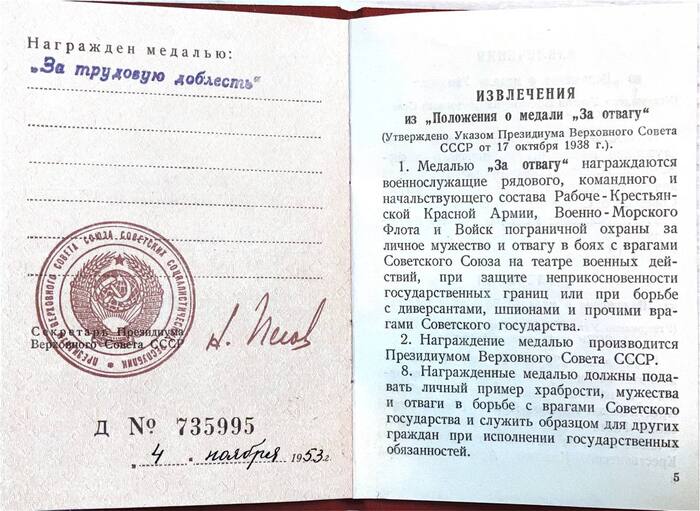 Награжден медалью:
„За трудовую доблесть“
ПРЕЗИДИУМ ВЕРХОВНОГО СОВЕТА СОЮЗА СОВЕТСКИХ СОЦИАЛИСТИЧЕСКИХ РЕСПУБЛИК
Секретарь Президиума
Верховного Совета СССР
Д № 735995
„4 „ ноября 1953 г.
ИЗВЛЕЧЕНИЯ
из „Положения о медали „За отвагу“
(Утверждено Указом Президиума Верховного Совета
СССР от 17 октября 1938 г.).
1. Медалью „За отвагу“ награждаются
военнослужащие рядового, командного и
начальствующего состава Рабоче-Крестьян-
ской Красной Армии, Военно-Морского
Флота и Войск пограничной охраны за
личное мужество и отвагу в боях с врагами
Советского Союза на театре военных дей-
ствий, при защите неприкосновенности
государственных границ или при борьбе
с диверсантами, шпионами и прочими вра-
гами Советского государства.
2. Награждение медалью производится
Президиумом Верховного Совета СССР.
8. Награжденные медалью должны пода-
вать личный пример храбрости, мужества
и отваги в борьбе с врагами Советского
государства и служить образцом для других
граждан при исполнении государственных
обязанностей.
5